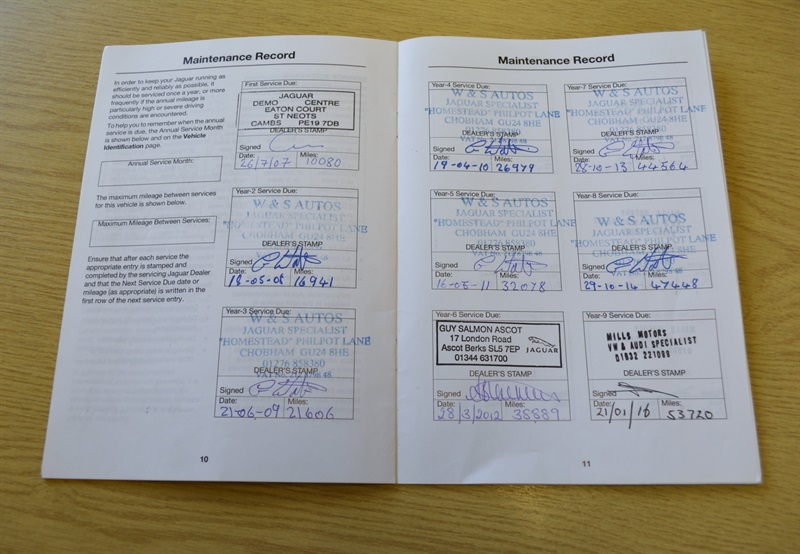 Maintenance Record
In order to keep your Jaguar running as
efficiently and reliably as possible, it
should be serviced once a year, or more
frequently if the annual mileage is
particularly high or severe driving
conditions are encountered.
To help you to remember when the annual
service is due, the Annual Service Month
is shown below and on the Vehicle
Identification page.
Annual Service Month:
The maximum mileage between services
for this vehicle is shown below.
Maximum Mileage Between Services:
Ensure that after each service the
appropriate entry is stamped and
completed by the servicing Jaguar Dealer
and that the Next Service Due date or
mileage (as appropriate) is written in the
first row of the next service entry.
First Service Due:
JAGUAR
DEMO CENTRE
EATON COURT
ST NEOTS
CAMBS PE19 7DB
DEALER'S STAMP
Signed
Date: Miles:
26/7/07 10080
Year-2 Service Due:
W & S AUTOS
JAGUAR SPECIALIST
"HOMESTEAD" PHILPOT LANE
CHOBHAM GU24 8HE
DEALER'S STAMP
Signed
Date: Miles:
18-05-08 16941
Year-3 Service Due:
W & S AUTOS
JAGUAR SPECIALIST
"HOMESTEAD" PHILPOT LANE
CHOBHAM GU24 8HE
01276 858380
DEALER'S STAMP
Signed
Date: Miles:
21-06-09 21606
10
Maintenance Record
Year-4 Service Due:
W & S AUTOS
JAGUAR SPECIALIST
"HOMESTEAD" PHILPOT LANE
CHOBHAM GU24 8HE
DEALER'S STAMP
Signed
Date: Miles:
19-04-10 26979
Year-5 Service Due:
W & S AUTOS
JAGUAR SPECIALIST
"HOMESTEAD" PHILPOT LANE
CHOBHAM GU24 8HE
01276 858380
DEALER'S STAMP
Signed
Date: Miles:
16-05-11 32078
Year-6 Service Due:
GUY SALMON ASCOT
17 London Road
Ascot Berks SL5 7EP
01344 631700
JAGUAR
DEALER'S STAMP
Signed
Date: Miles:
28/3/2012 38889
Year-7 Service Due:
W & S AUTOS
JAGUAR SPECIALIST
"HOMESTEAD" PHILPOT LANE
CHOBHAM GU24 8HE
DEALER'S STAMP
Signed
Date: Miles:
28-10-13 44564
Year-8 Service Due:
W & S AUTOS
JAGUAR SPECIALIST
"HOMESTEAD" PHILPOT LANE
CHOBHAM GU24 8HE
DEALER'S STAMP
Signed
Date: Miles:
29-10-14 47448
Year-9 Service Due:
MILLS MOTORS
VW & AUDI SPECIALIST
01932 221099
DEALER'S STAMP
Signed
Date: Miles:
21/01/16 53720
11